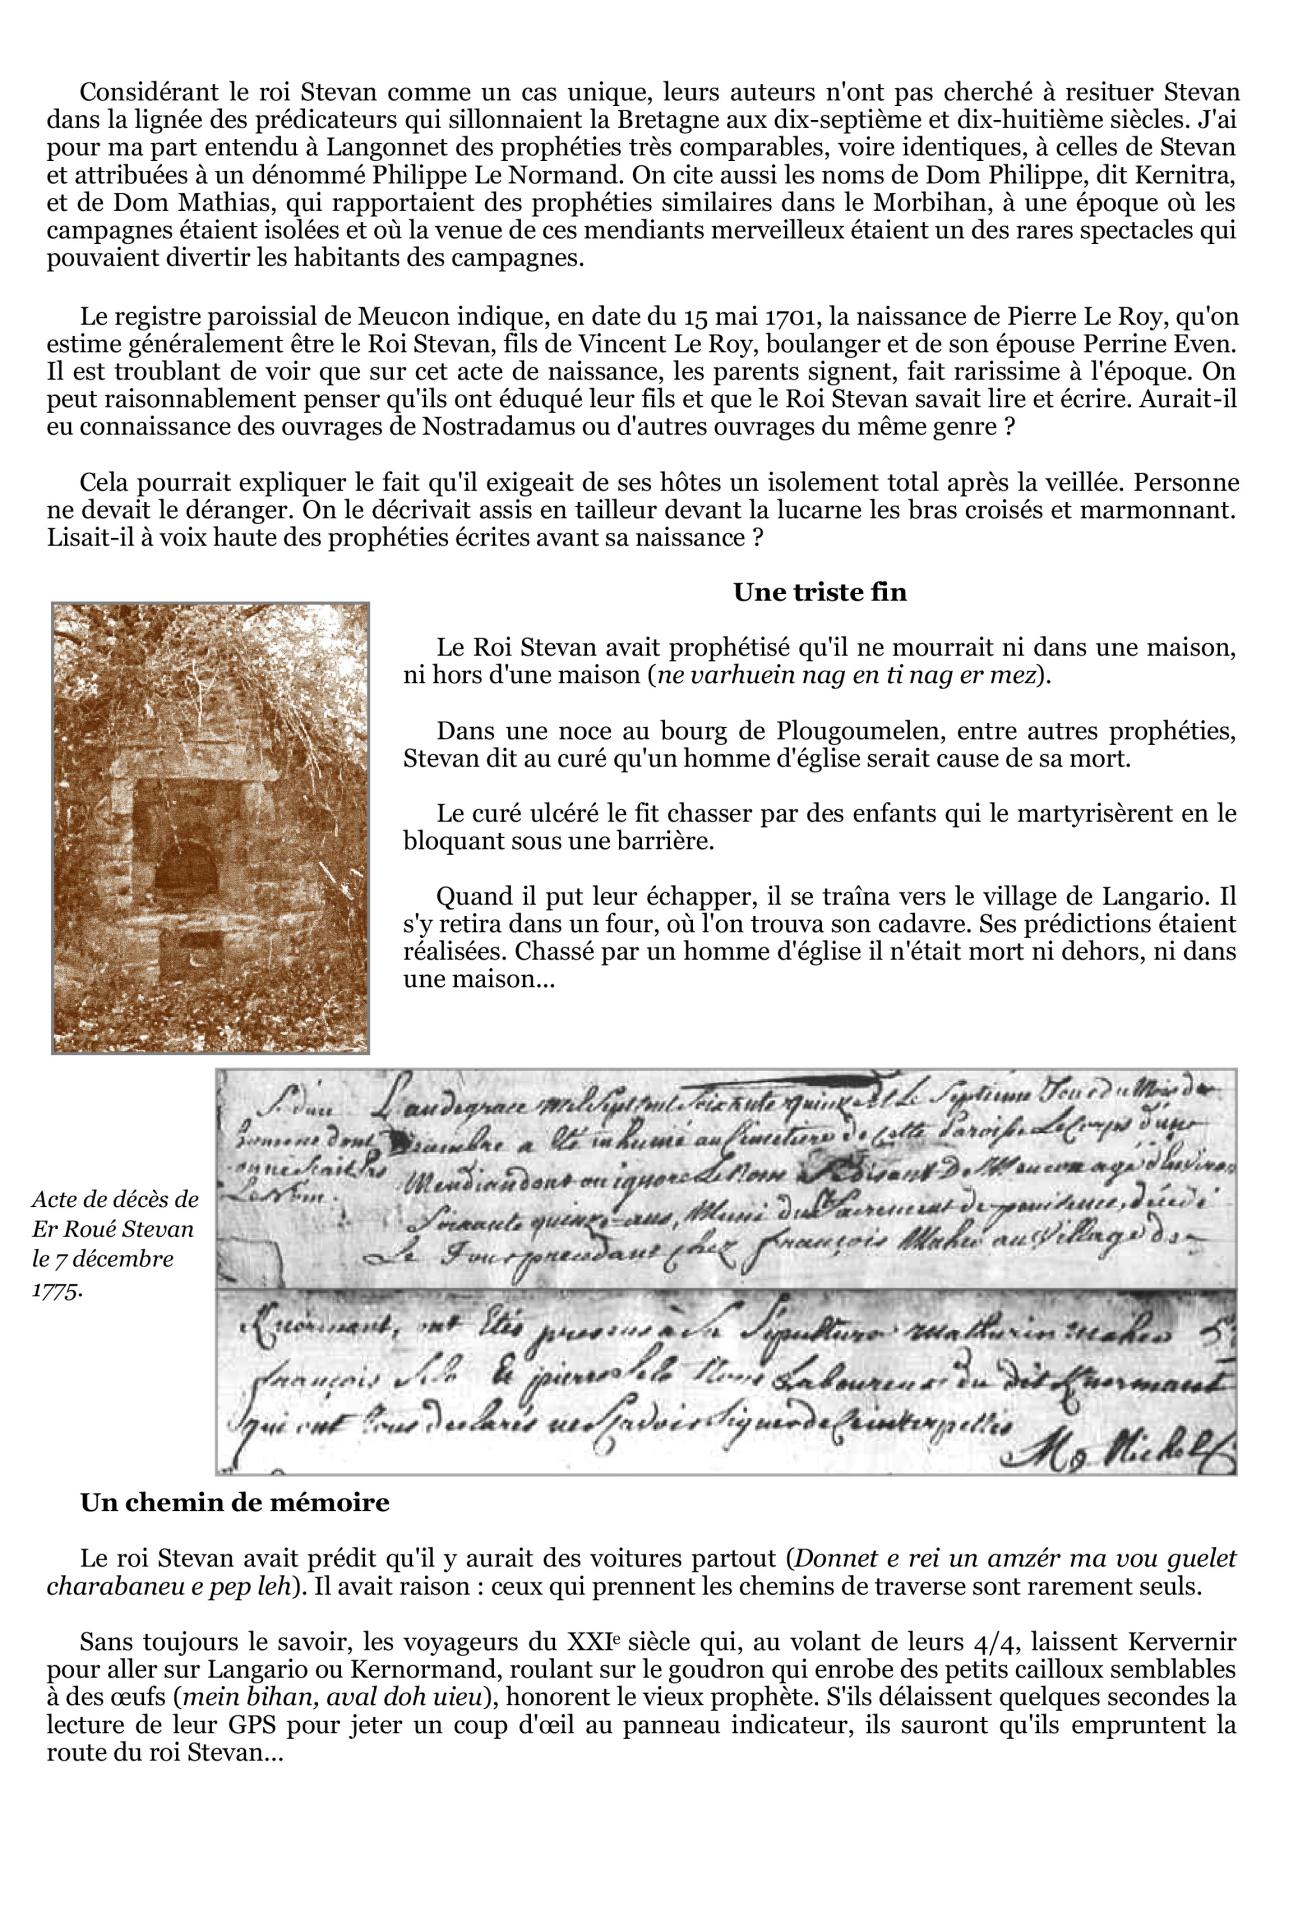 Considérant le roi Stevan comme un cas unique, leurs auteurs n'ont pas cherché à resituer Stevan
dans la lignée des prédicateurs qui sillonnaient la Bretagne aux dix-septième et dix-huitième siècles. J'ai
pour ma part entendu à Langonnet des prophéties très comparables, voire identiques, à celles de Stevan
et attribuées à un dénommé Philippe Le Normand. On cite aussi les noms de Dom Philippe, dit Kernitra,
et de Dom Mathias, qui rapportaient des prophéties similaires dans le Morbihan, à une époque où les
campagnes étaient isolées et où la venue de ces mendiants merveilleux étaient un des rares spectacles qui
pouvaient divertir les habitants des campagnes.
Le registre paroissial de Meucon indique, en date du 15 mai 1701, la naissance de Pierre Le Roy, qu'on
estime généralement être le Roi Stevan, fils de Vincent Le Roy, boulanger et de son épouse Perrine Even.
Il est troublant de voir que sur cet acte de naissance, les parents signent, fait rarissime à l'époque. On
peut raisonnablement penser qu'ils ont éduqué leur fils et que le Roi Stevan savait lire et écrire. Aurait-il
eu connaissance des ouvrages de Nostradamus ou d'autres ouvrages du même genre ?
Cela pourrait expliquer le fait qu'il exigeait de ses hôtes un isolement total après la veillée. Personne
ne devait le déranger. On le décrivait assis en tailleur devant la lucarne les bras croisés et marmonnant.
Lisait-il à voix haute des prophéties écrites avant sa naissance ?
Une triste fin
Le Roi Stevan avait prophétisé qu'il ne mourrait ni dans une maison,
ni hors d'une maison (ne varhuein nag en ti nag er mez).
Dans une noce au bourg de Plougoumelen, entre autres prophéties,
Stevan dit au curé qu'un homme d'église serait cause de sa mort.
Le curé ulcéré le fit chasser par des enfants qui le martyrisèrent en le
bloquant sous une barrière.
Quand il put leur échapper, il se traîna vers le village de Langario. Il
s'y retira dans un four, où l'on trouva son cadavre. Ses prédictions étaient
réalisées. Chassé par un homme d'église il n'était mort ni dehors, ni dans
une maison...
Acte de décès de
Er Roué Stevan
le 7 décembre
1775.
L'an de grace mil Sept Cent Soixante quinze et Le Septieme Jour du Mois de
Decembre a été inhumé au Cimetiere de Cette Paroisse Le Corps d'une
Mendiant dont on ignore Le Nom Se Disant De Meucon agé d'Environ
Soixante quinze ans, Muni du Sacrement de penitence, décédé
Le Jour precedant chez françois Maheo au Village de
Kuormant, ont Etés presens à Sa Sépulture Mathurin Maheo
françois Selo Et pierre Selo Laboureurs du dit Kuermant
qui ont tous declarés ne Scavoir Signer de Ce interpellés
Un chemin de mémoire
Le roi Stevan avait prédit qu'il y aurait des voitures partout (Donnet e rei un amzér ma vou guelet
charabaneu e pep leh). Il avait raison : ceux qui prennent les chemins de traverse sont rarement seuls.
Sans toujours le savoir, les voyageurs du XXIe siècle qui, au volant de leurs 4/4, laissent Kervernir
pour aller sur Langario ou Kernormand, roulant sur le goudron qui enrobe des petits cailloux semblables
à des œufs (mein bihan, aval doh uieu), honorent le vieux prophète. S'ils délaissent quelques secondes la
lecture de leur GPS pour jeter un coup d'œil au panneau indicateur, ils sauront qu'ils empruntent la
route du roi Stevan...